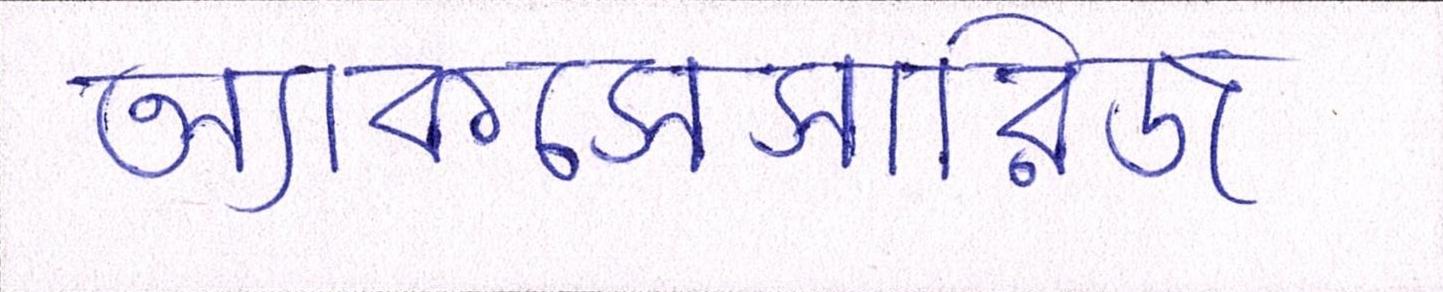 অ্যাকসেসারিজ